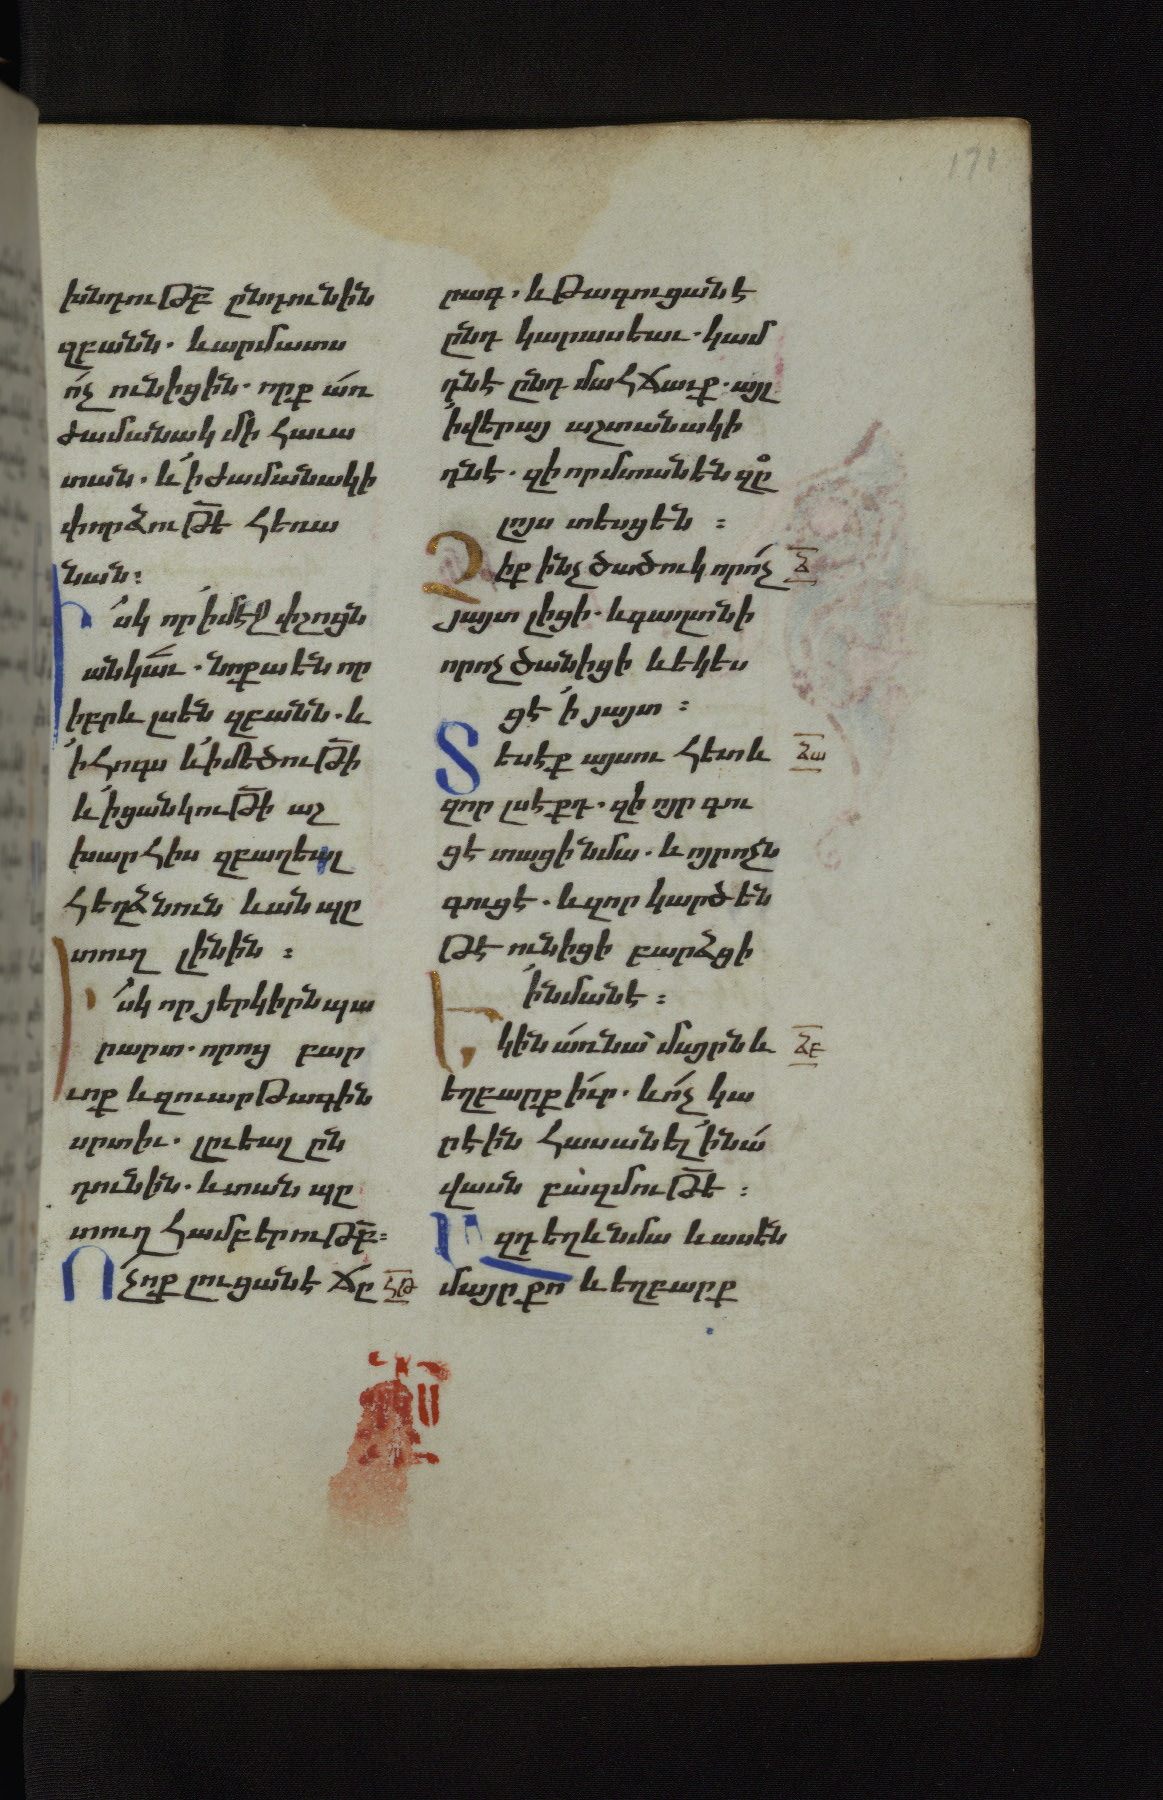 խնդութբ ընդունին
զբանն. և արմատս
ո՛չ ունիցին. որք առ
ժամանակ մի հաւա
տան. և ՛ի ժամանակի
փորձութե հեռա
նան։
Իսկ որ ՛ի մէջ փշոցն
անկաւ. նոքա են որ
իբրև լսեն զբանն. և
՛ի հոգս և ՛ի մեծութի
և ՛ի ցանկութի աշ
խարհիս զբաղեալ
հեղձնուն և անպը
տուղ լինին ։
Իսկ որ յերկիրն պա
րարտ. որոց բար
ւոք և զուարթագին
սրտիւ. լըւեալ ըն
դունին. և տան պը
տուղ համբերութբ։
Ո՛չ ոք լուցանէ ճը ՀԹ
րագ. և թագուցանէ
ընդ կարասեաւ. կամ
դնէ ընդ մահճաւք. այլ
՛ի վերայ աշտանակի
դնէ. զի որ մտանեն զը
լոյս տեսցեն ։
Չիք ինչ ծածուկ որ ո՛չ Ձ
յայտ լիցի. և գաղտնի
որ ոչ ծանիցի և եկես
ցէ ՛ի յայտ ։
Տեսէք այսու հետև ՁԱ
զոր լսէքդ. զի ոյր գու
ցէ տացի նմա. և ոյր ոչն
գուցէ. և զոր կարծեն
թէ ունիցի բարձցի
՛ի նմանէ ։
Եկին առ նա մայրն և ՁԲ
եղբարք իւր. և ո՛չ կա
րէին հասանել ՛ի նա
վասն բազմութե ։
Ազդ եղև նմա և ասեն
մայր քո և եղբարք